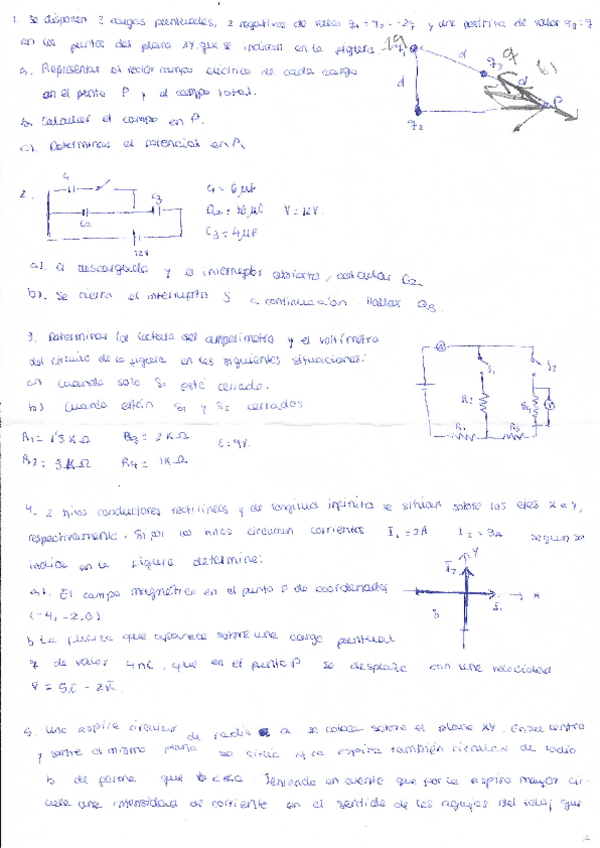 1. Se disponen 3 cargas puntuales, 2 negativas de valor q1 = q2 = -2q y una positiva de valor q3 = q
en los puntos del plano XY que se indican en la figura
a. Representar el vector campo eléctrico de cada carga
en el punto P y el campo total.
b. Calcular el campo en P.
c). Determinar el potencial en P.
-2q q1 d q3 q
d d
q2 P
2. C1 C2 C3 12V
C1 = 6 µF
C3 = 4 µF V = 12V
a). descargada y el interruptor abierto, calcular Q2
b). Se cierra el interruptor S a continuación. Hallar Q3.
3. Determinar la lectura del amperímetro y el voltímetro
del circuito de la figura en las siguientes situaciones:
a) Cuando solo S1 está cerrado.
b) Cuando están S1 y S2 cerrados
R1 = 1'5 KΩ R3 = 2 KΩ ε = 9V.
R2 = 3 KΩ R4 = 1KΩ
S1 S2
R2 R4
R1 R3
4. 2 hilos conductores rectilíneos y de longitud infinita se sitúan sobre los ejes X e Y,
respectivamente. Si por los hilos circulan corrientes I1 = 2A I2 = 3A según se
indica en la figura determine:
a). El campo magnético en el punto P de coordenadas
(-4, -2, 0)
b La fuerza que aparece sobre una carga puntual
q de valor 4nC, que en el punto P se desplaza con una velocidad
I2 Y
I1 X
5. Una espira circular de radio a se coloca sobre el plano XY. En su centro
y sobre el mismo plano se sitúa otra espira también circular de radio
b de forma que b<<a. Teniendo en cuenta que por la espira mayor cir-
cula una intensidad de corriente en el sentido de las agujas del reloj que